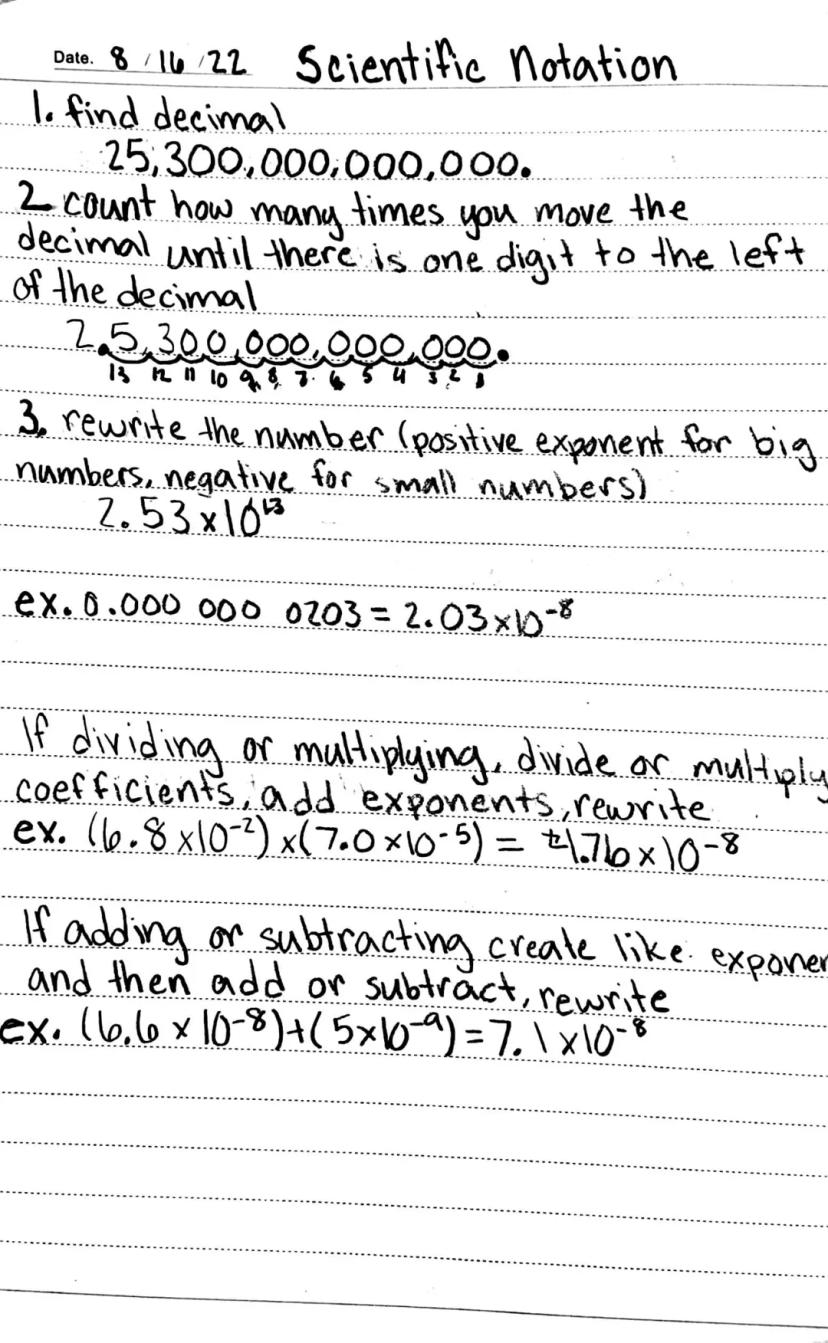 Date. 8 / 16 / 22 Scientific Notation
1. find decimal
25,300,000,000,000.
2 count how many times you move the
decimal until there is one digit to the left
of the decimal
2.5,300,000,000,000.
13 12 11 10 9 8 7 6 5 4 3 2 1
3. rewrite the number (positive exponent for big
numbers, negative for small numbers)
2.53 x 10¹³
ex. 0.000 000 0203 = 2.03 x 10⁻⁸
If dividing or multiplying, divide or multiply
coefficients, add exponents, rewrite
ex. (6.8 x 10⁻²) x (7.0 x 10⁻⁵) = 1.76 x 10⁻⁸
If adding or subtracting create like exponen
and then add or subtract, rewrite
ex. (6.6 x 10⁻⁸) + (5 x 10⁻⁹) = 7.1 x 10⁻⁸